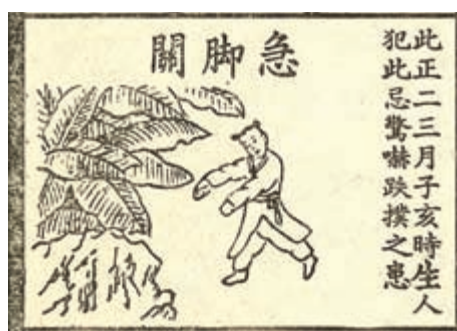 急脚關
此正二三月子亥時生人
犯此忌驚嚇跌撲之患